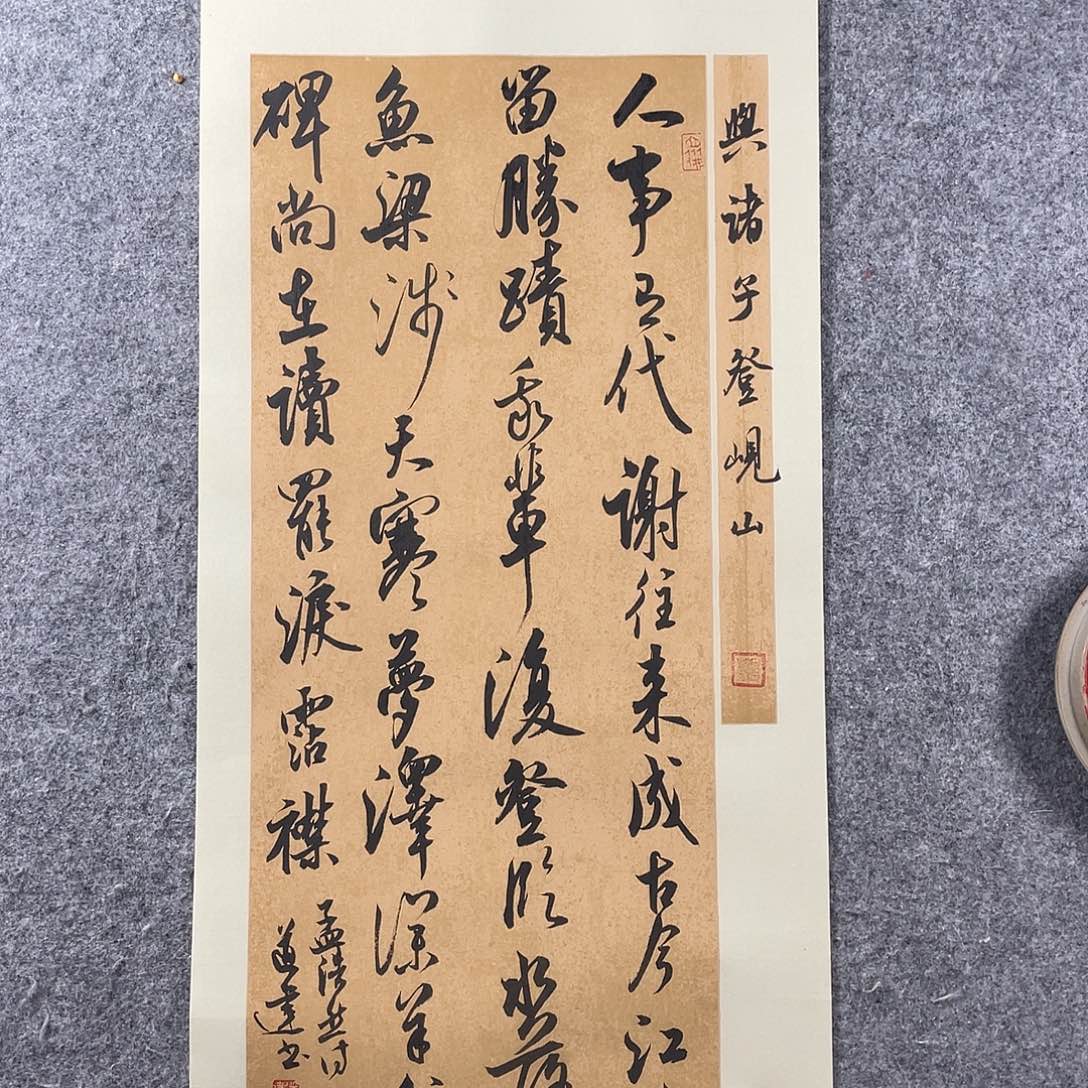 與諸子登峴山
人事有代謝往来成古今江
留勝蹟我輩復登臨水落
魚梁浅天寒夢澤深羊
碑尚在讀罷淚霑襟
孟浩然诗
书